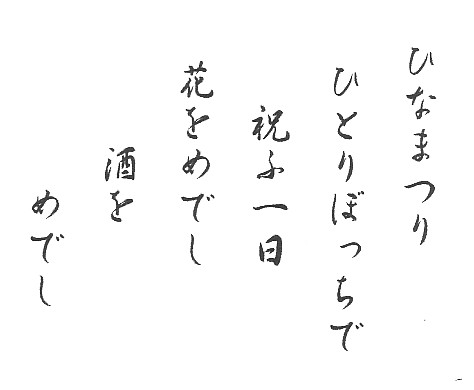 ひなまつり
ひとりぼっちで
祝ふ一日
花をめでし
酒を
めでし